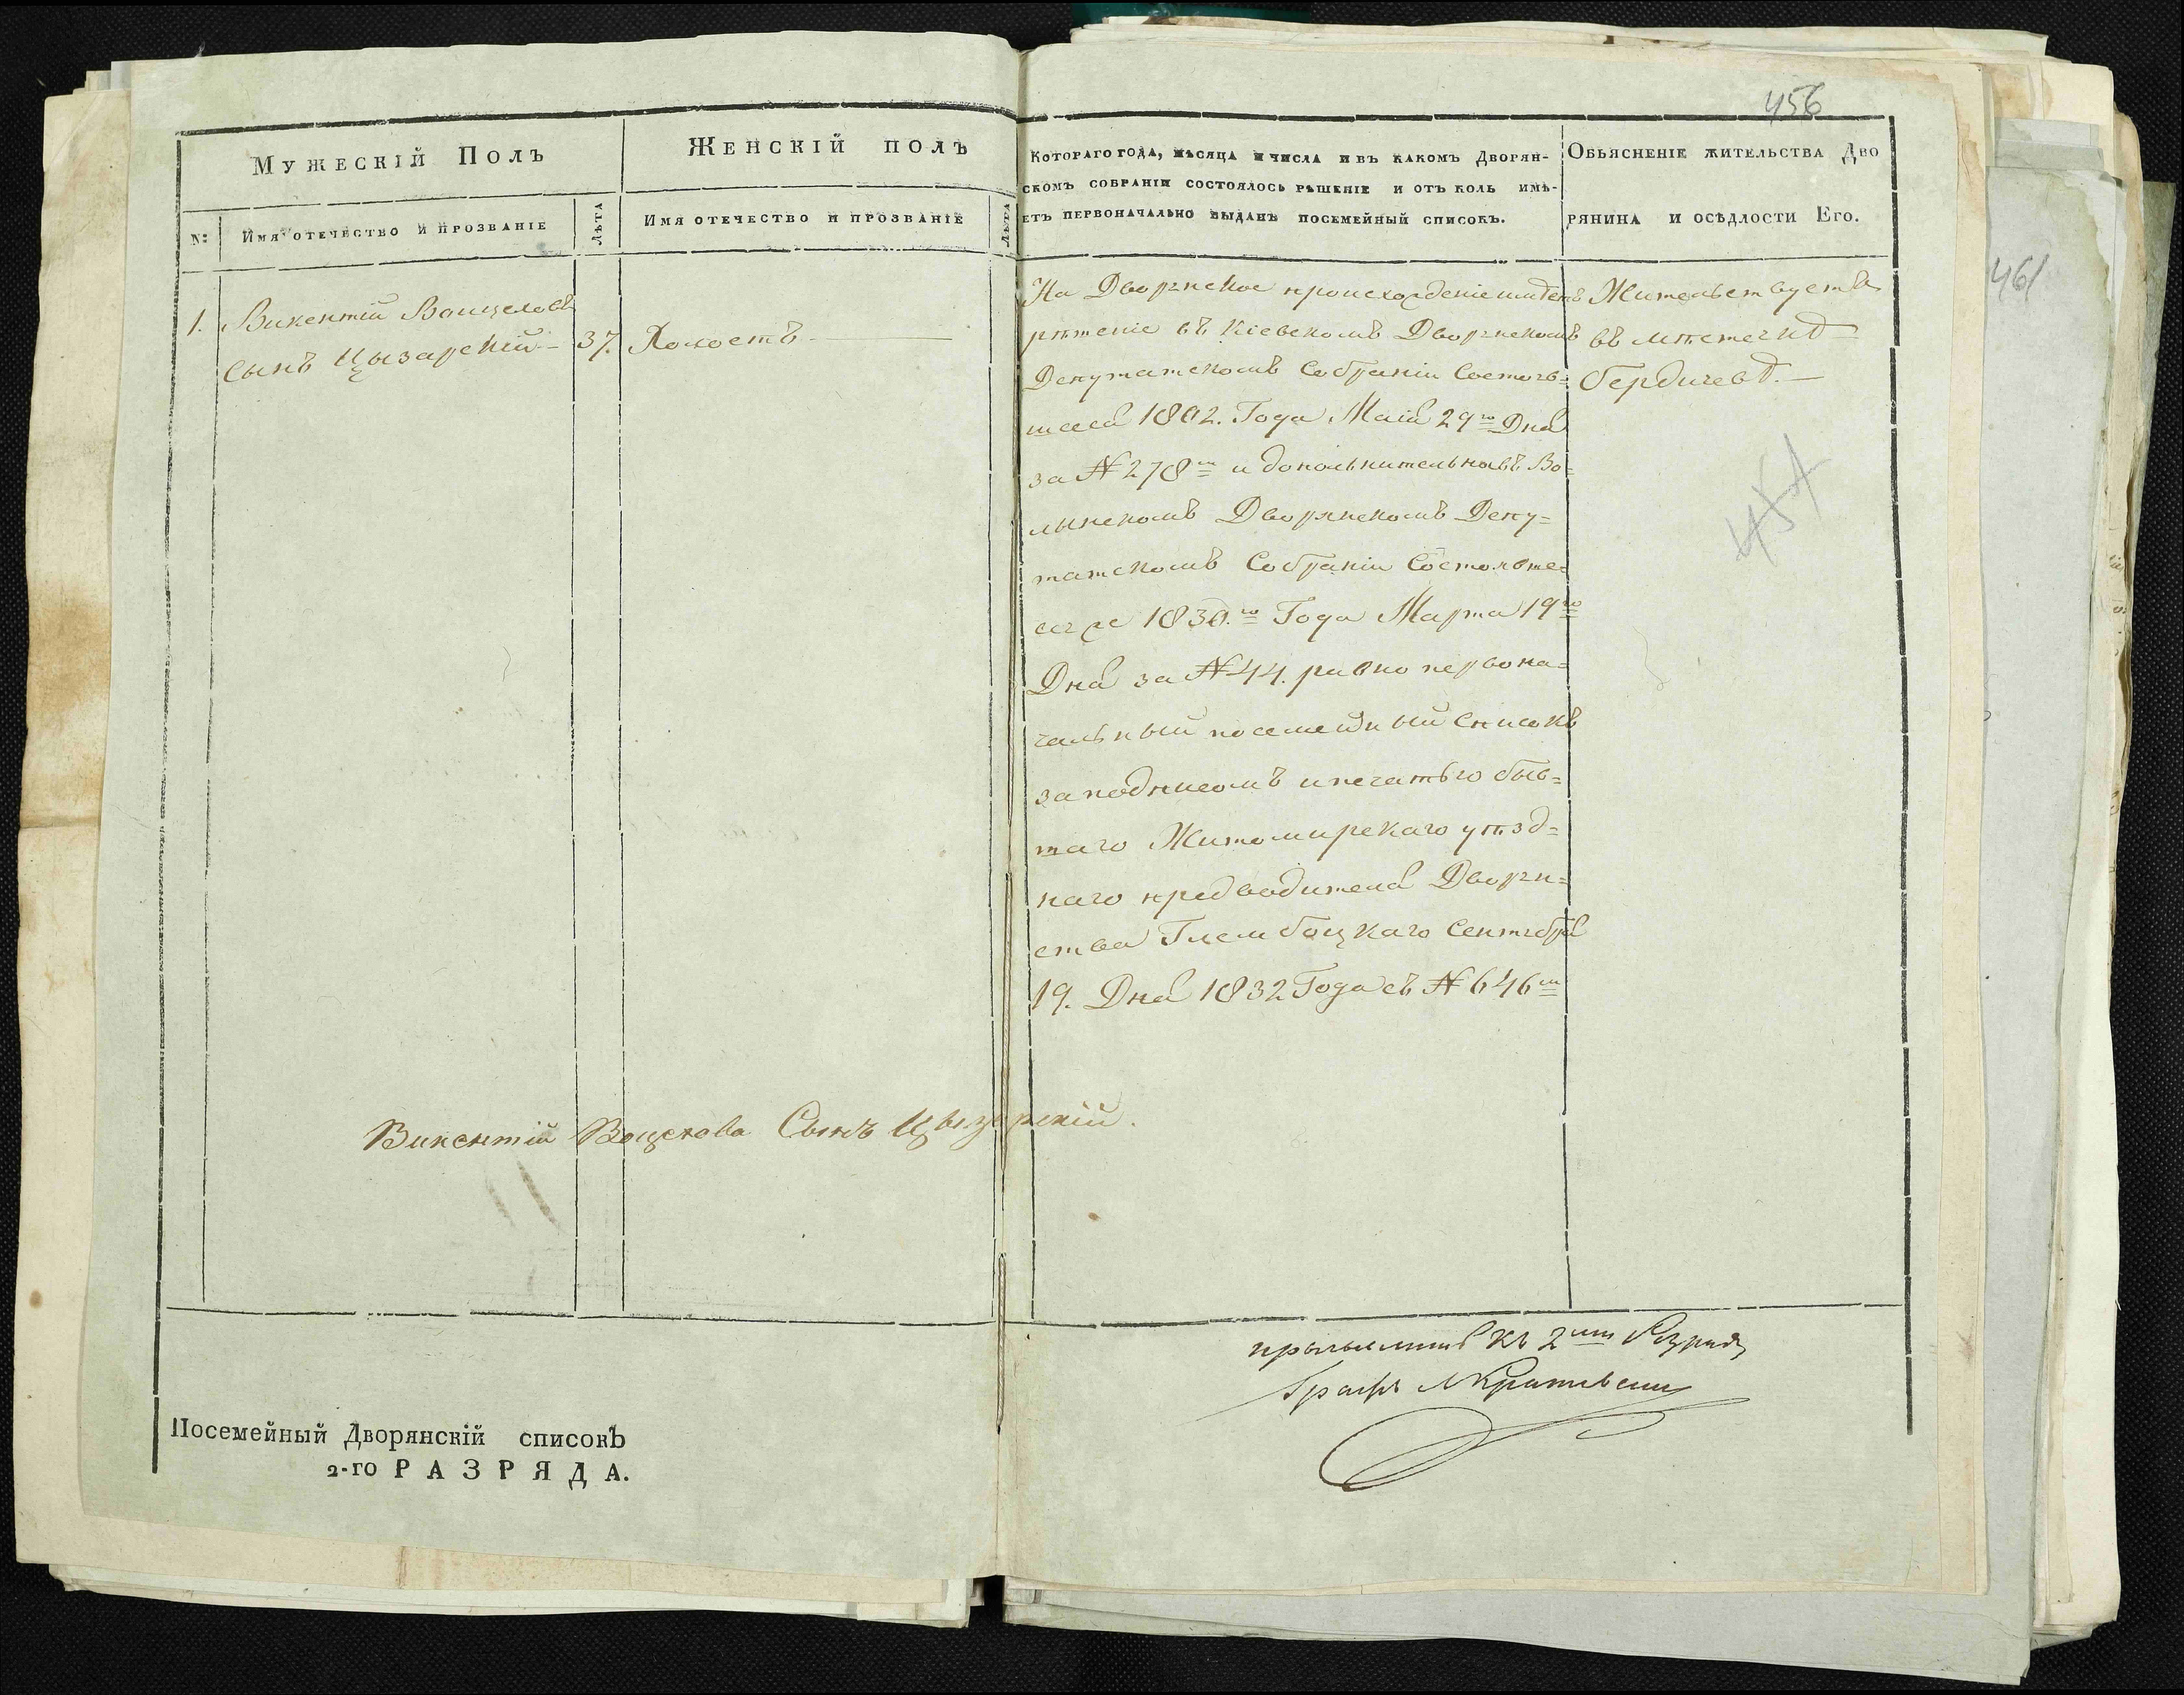 456
Мужескій Полъ
Женскій полъ
Котораго года, мѣсяца и числа и въ какомъ Дворян-
скомъ собраніи состоялось рѣшеніе и отъ коль имѣ-
етъ первоначально выданъ посемейный списокъ.
Обьясненіе жительства Дво
рянина и осѣдлости Его.
№: Имя отечество и прозваніе Лѣта
Имя отечество и прозваніе Лѣта
1. Викентій Войцеховъ
сынъ Цызарскій 37.
Холостъ
На Дворянское происхожденіе имѣетъ
рѣшеніе въ Кіевскомъ Дворянскомъ
Депутатскомъ Собраніи Состояв=
шееся 1802. Года Маія 29го Дня
за № 278м и дополнительно въ Во=
лынскомъ Дворянскомъ Депу=
татскомъ Собраніи Состоявше=
еся же 1830.го Года Марта 19го
Дня за № 44. равно первона=
чальный посемейный списокъ
за подписомъ и печатью быв=
шаго Житомирскаго уѣзд=
наго предводителя Дворян=
ства Глембоцкаго Сентября
19. Дня 1832 Года съ № 646м
Жительствуетъ
въ мѣстечкѣ
Бердичевѣ.
454
Викентій Войцехова Сынъ Цызарскій.
къ 2му Разряду
Графъ
Посемейный Дворянскій списокъ
2-го РАЗРЯДА.
461